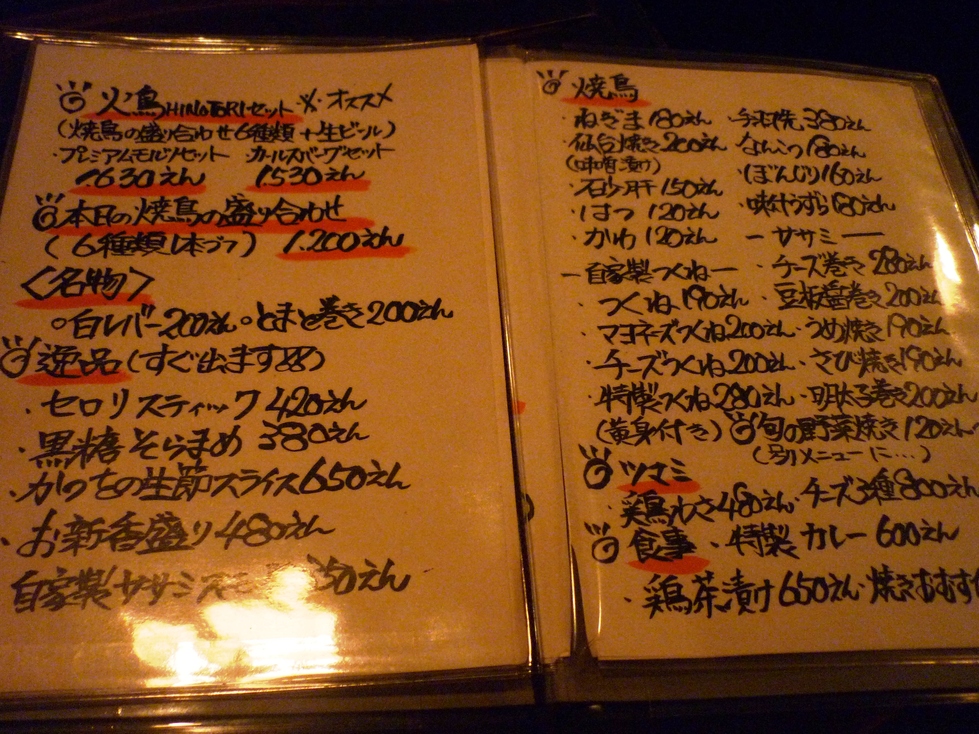 火の鳥 HINOTORIセット ※オススメ
(焼鳥の盛り合わせ6種類+生ビール)
・プレミアムモルツセット ・カールスバーグセット
1.630えん 1.530えん
本日の焼鳥の盛り合わせ
(6種類1本づつ) 1.200えん
〈名物〉
○白レバー200えん○とまと巻き200えん
逸品(すぐ出ます
・セロリスティック420えん
・黒糖そらまめ 380えん
・かつをの生節スライス650えん
・お新香盛り480えん
自家製ササミ 50えん
焼鳥
・ねぎま180えん ・手羽先380えん
・仙台焼き200えん ・なんこつ180えん
(味噌漬け) ・ぼんじり160えん
・砂肝150えん ・味付うずら180えん
・はつ 120えん
・かわ 120えん ーササミー
ー自家製つくねー ・チーズ巻き280えん
・つくね190えん ・豆板醤巻き200えん
・マヨネーズつくね200えん ・うめ焼き190えん
・チーズつくね200えん ・さび焼き190えん
・特製つくね280えん ・明太子巻き200えん
(黄身付き) 旬の野菜焼き120えん〜
(別メニューに…)
ツマミ
・鶏わさ480えん ・チーズ3種800えん
食事 ・特製カレー600えん
・鶏茶漬け650えん ・焼きおむす